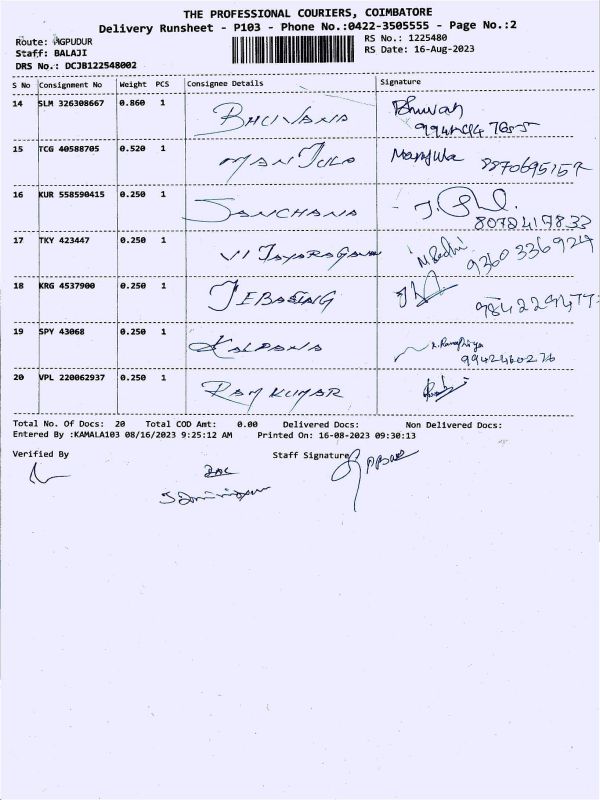 THE PROFESSIONAL COURIERS, COIMBATORE
Delivery Runsheet - P103 - Phone No.:0422-3505555 - Page No.:2
Route: AGPUDUR
RS No.: 1225480
Staff: BALAJI
RS Date: 16-Aug-2023
DRS No.: DCJB122548002
S No Consignment No Weight PCS Consignee Details Signature
14 SLM 326308667 0.860 1 BHUVANA
15 TCG 40588705 0.520 1 MANJULA Manjula 8870695157
16 KUR 558590415 0.250 1 SANCHANA
8072417833
17 TKY 423447 0.250 1 VIJAYARAGAVAN
9360336924
18 KRG 4537900 0.250 1 JEBASING
19 SPY 43068 0.250 1 KALPANA
9942460276
20 VPL 220062937 0.250 1 RAM KUMAR
Total No. Of Docs: 20 Total COD Amt: 0.00 Delivered Docs: Non Delivered Docs:
Entered By :KAMALA103 08/16/2023 9:25:12 AM Printed On: 16-08-2023 09:30:13
Verified By Staff Signature